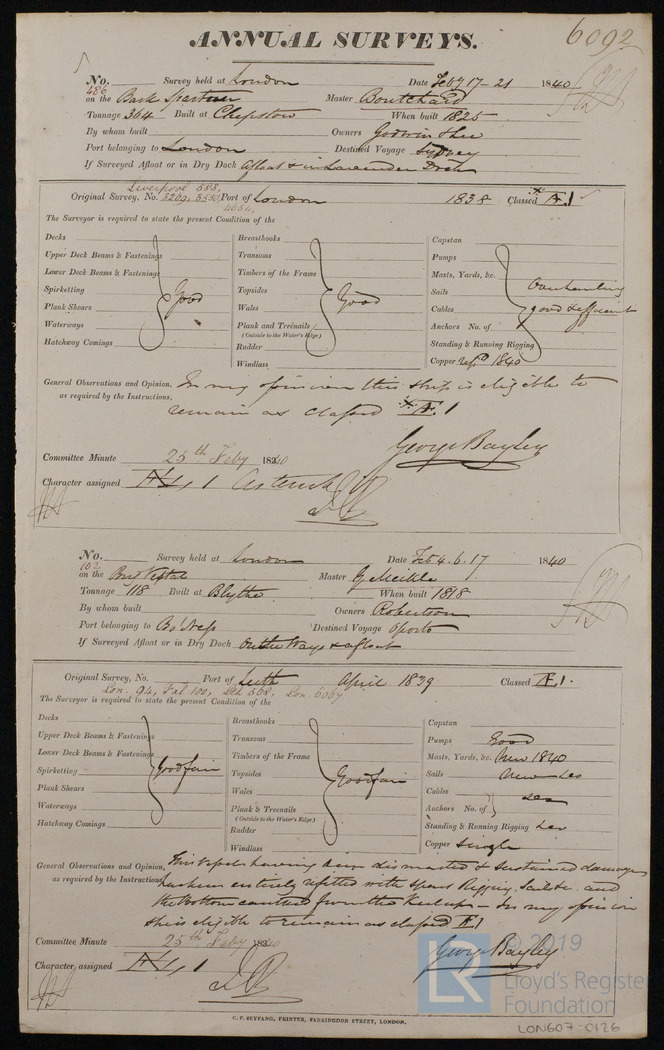 ANNUAL SURVEYS.
6092
No. 486 Survey held at London Date Feby 17-21 1840
on the Bark Master Boutchard
Tonnage 304 Built at Chepstow When built 1825
By whom built Owners Godwin
Port belonging to London Destined Voyage Sydney
If Surveyed Afloat or in Dry Dock afloat & in Lavender Dock
Liverpool 583,
Original Survey, No. 3209, 3550 Port of London 1838 Classed Æ 1
4054
The Surveyor is required to state the present Condition of the
Decks Breasthooks Capstan
Upper Deck Beams & Fastenings Transoms Pumps
Lower Deck Beams & Fastenings Timbers of the Frame Masts, Yards, &c.
Spirketting Good Topsides Good Sails Overhauling
Plank Shears Wales Cables good & efficient
Waterways Plank and Treenails Anchors No. of
(Outside to the Water's Edge)
Hatchway Comings Rudder Standing & Running Rigging
Windlass Copper repd 1840
General Observations and Opinion, In my opinion this ship is eligible to
as required by the Instructions, remain as classed * Æ 1
George Bayley
Committee Minute 25th Feby 1840
Character assigned Æ 1 Asterisk
No. 102 Survey held at London Date Feb 4. 6. 17 1840
on the Brig Vestal Master G Meikle
Tonnage 118 Built at Blythe When built 1818
By whom built Owners Robertson
Port belonging to Bo'Ness Destined Voyage Oporto
If Surveyed Afloat or in Dry Dock On the Ways & afloat
Original Survey, No. Port of Leith April 1839 Classed Æ 1.
Lon. 94, Fal 100, Lth 568, Lon 6067
The Surveyor is required to state the present Condition of the
Decks Breasthooks Capstan
Upper Deck Beams & Fastenings Transoms Pumps Good
Lower Deck Beams & Fastenings Timbers of the Frame Masts, Yards, &c. New 1840
Spirketting Good fair Topsides Good fair Sails New
Plank Shears Wales Cables
Waterways Plank & Treenails Anchors No. of
(Outside to the Water's Edge)
Hatchway Comings Rudder Standing & Running Rigging
Windlass Copper single
General Observations and Opinion, This Vessel having been dismasted & sustained damage
as required by the Instructions, has been entirely refitted with spars Rigging Sails &c. and
the Bottom caulked from the Keel up - In my opinion
she is eligible to remain as classed Æ 1
Committee Minute 25th Feby 1840
George Bayley
Character, assigned Æ 1
C. F. SEYFANG, PRINTER, FARRINGDON STREET, LONDON.
© 2019
LR
Lloyd's Register
Foundation
LON607-0126